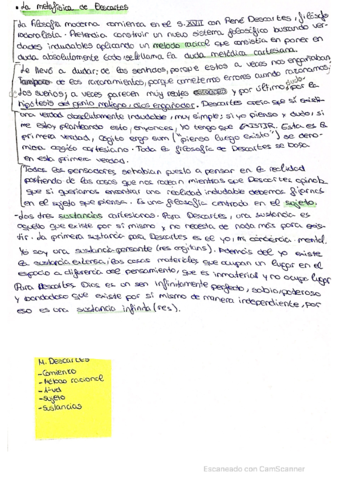 • La metafísica de Descartes
La filosofía moderna comienza en el s. XVII con René Descartes, filósofo
racionalista. Pretendía construir un nuevo sistema filosófico buscando ver-
dades indudables aplicando un método racional que consistía en poner en
duda absolutamente todo
Le llevó a dudar: de los sentidos, porque estos a veces nos engañaban
Tampoco de los razonamientos, porque cometemos errores cuando razonamos,
los sueños, a veces parecen muy reales y por último, por la
hipótesis del genio maligno, dios engañador. Descartes creía que sí existe
una verdad absolutamente indudable, muy simple; si yo pienso y dudo, si
me estoy planteando esto, entonces, yo tengo que EXISTIR. Esta es la
primera verdad, cogito ergo sum ("pienso luego existo") se deno-
mina cogito cartesiano. Toda la filosofía de Descartes se basa
en esta primera verdad.
Todos los pensadores se habían puesto a pensar en la realidad
partiendo de las cosas que nos rodean mientras que Descartes opinaba
que si queríamos encontrar una realidad indudable debemos fijarnos
en el sujeto que piensa. Es una filosofía centrada en el sujeto.
-Las tres sustancias cartesianas. Para Descartes, una sustancia es
aquello que existe por sí mismo y no necesita de nada más para exis-
tir. La primera sustancia para Descartes es el yo, mi conciencia mental.
Yo soy una sustancia pensante (res cogitans). Además del yo existe
la sustancia extensa, las cosas materiales que ocupan un lugar en el
espacio a diferencia del pensamiento, que es inmaterial y no ocupa lugar
Para Descartes Dios es un ser infinitamente perfecto, sabio, poderoso
y bondadoso que existe por sí mismo de manera independiente, por
eso es una sustancia infinita (res).
M. Descartes
-Comienzo
-Método racional
-Sujeto
-Sustancias
Escaneado con CamScanner